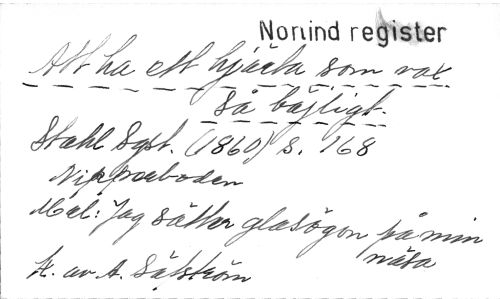 Norlind register
Att ha ett hjärta som vax
så böjligt.
Stahl Sgst. (1860) S. 168
Nipperboden
Mel: Jag sätter glasögon på min
näsa
t. av A. Sälström